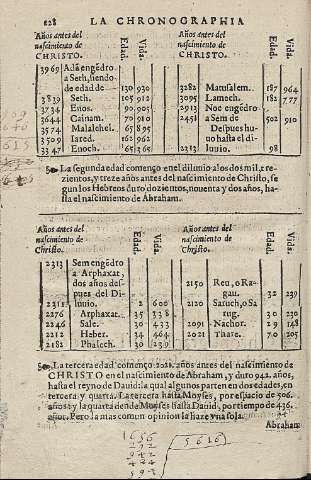 828 LA CHRONOGRAPHIA
Años antes del
nascimiento de
CHRISTO.
Edad.
Vida.
3969 Adā engēdro
a Seth, siendo
de edad de 130 930
3839 Seth. 105 912
3734 Enos. 90 905
3644 Cainam. 70 910
3574 Malalehel. 65 895
3509 Iared. 162 962
3347 Enoch. 65 365
Años antes del
nascimiento de
CHRISTO.
Edad.
Vida.
3282 Matusalem. 187 964
3095 Lamech. 182 777
2913 Noe engēdro
2451 a Sem de 502 910
Despues hu-
uo hasta el di-
2313 luuio. 98
La segunda edad començo en el diluuio a los dos mil, tre-
zientos, y treze años antes del nascimiento de Christo, se
gun los Hebreos duro dozientos, nouenta y dos años, ha-
sta el nascimiento de Abraham.
Años antes del
nascimiento de
Christo.
Edad.
Vida.
2313 Sem engēdro
a Arphaxat,
dos años des-
pues del Di-
2311 luuio. 2 600
2276 Arphaxat. 35 338
2246 Sale. 30 433
2212 Heber. 34 464
2182 Phalech. 30 239
Años antes del
nascimiento de
Christo.
Edad.
Vida.
2150 Reu, o Ra-
gau. 32 239
2120 Saruch, o Sa
rug. 30 230
2091 Nachor. 29 148
2021 Thare. 70 205
La tercera edad començo 2021. años antes del nascimiento de
CHRISTO en el nascimiento de Abraham, y duro 942. años,
hasta el reyno de Dauid: la qual algunos parten en dos edades, en
tercera y quarta. La tercera hasta Moysés, por espacio de 506.
años: y la quarta desde Moysés hasta Dauid, por tiempo de 436.
años. Pero la mas comun opinion la haze vna sola.
Abraham
1656
292
942
5616